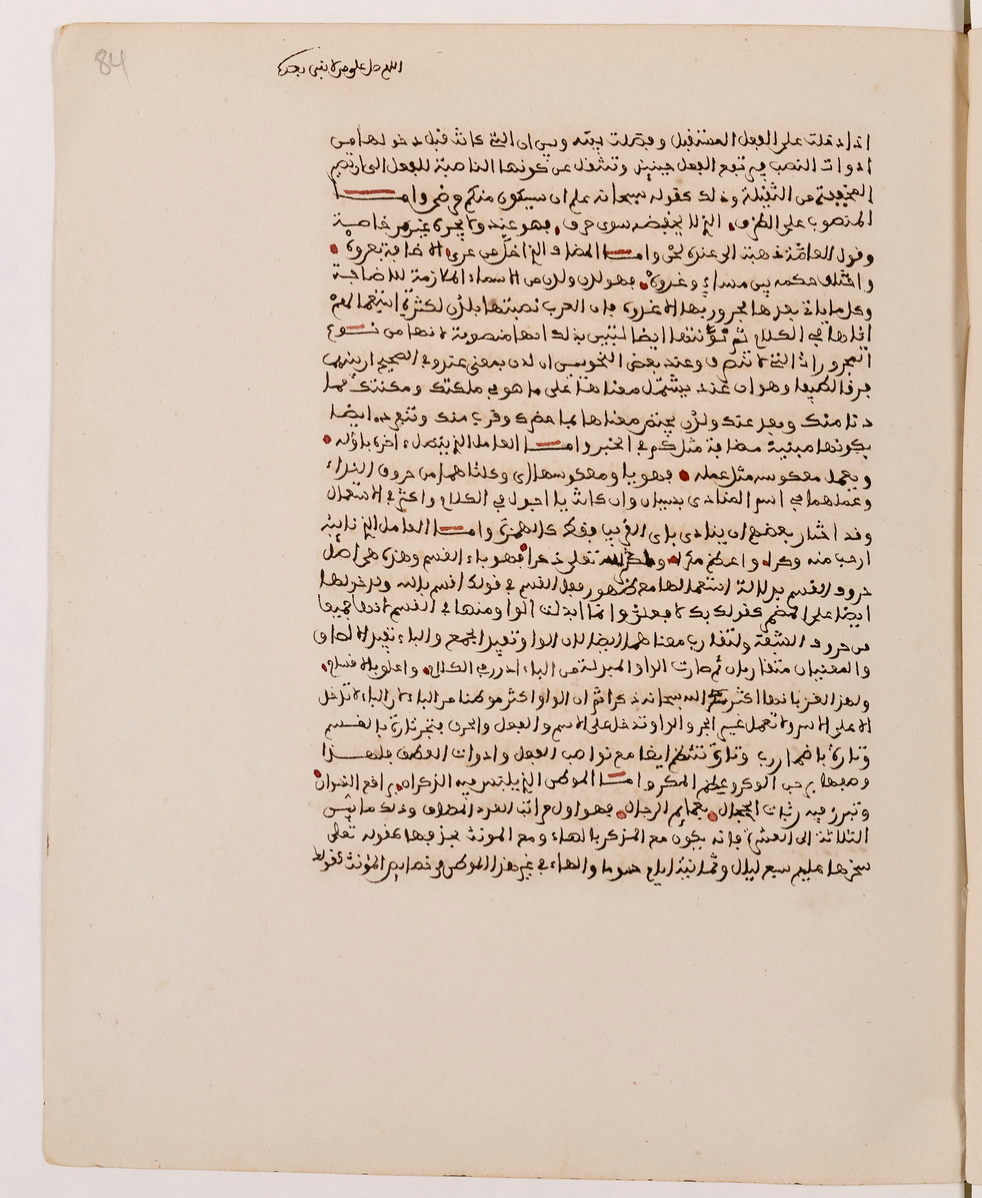 اللهم صل على من لا نبي بعده
اذا دخلت على الفعل المستقبل وفصلت بينه وبين ان التي كانت قبل دخولها من
ادوات النصب فيرتفع الفعل حينئذ وتنتقل عن كونها الناصبة للفعل الى ان تصير
المخففة من الثقيلة وذلك كقوله سبحانه علم ان سيكون منكم مرضى واما
المنصوب على الظرف الذي لا يخفضه سوى حرف فهو عند ولا يجره غير من خاصة
وقول العامة ذهبت الى عنده لحن واما المضاف الذي اخل من عرى الاضافة بعروة
واختلف حكمه بين مساء وغدوة فهو لدن ولدن من الاسماء الملازمة للاضافة
وكل ما ياتي بعدها مجرور بها الا غدوة فان العرب نصبتها بلدن لكثرة استعمالهم
اياها في الكلام ثم نونتها ايضا لتبين بذلك انها منصوبة لا انها من نوع
المجرورات التي لا تنصرف وعند بعض النحويين ان لدن بمعنى عند وفي الصحيح ان بينهما
فرقا لطيفا وهو ان عند يشتمل معناها على ما هو في ملكتك ومكنتك مما
دنا منك وبعد عنك ولدن يختص معناها بما حضرك وقرب منك وتنفرد ايضا
بكونها مبنية مضافة مثل كم في الخبر واما العامل الذي يتصل اخره باوله
ويعمل معكوسه مثل عمله فهو يا ومعكوسها اي وكلتاهما من حروف النداء
وعملهما في اسم المنادى سيان وان كانت يا اجول في الكلام واكثر في الاستعمال
وقد اختار بعضهم ان ينادى باي القريب فقط كالهمزة واما العامل الذي نايبه
ارحب منه وكرا واعظم مكرا لله تعلى ذكرا فهو باء القسم وهذه هي اصل
حروف القسم بدلالة استعمالها مع ظهور فعل القسم في قولك اقسم بالله ولدخولها
ايضا على المضمر كقولك بك لافعلن وانما ابدلت الواو منها في القسم لانهما جميعا
من حروف الشفة ولتقارب معناهما ايضا لان الواو تفيد الجمع والباء تفيد الالصاق
والمعنيان متقاربان ثم صارت الواو المبدلة من الباء ادور في الكلام واعلق بالاقسام
ولهذا الغز بانها اكثر لله سبحانه ذكرا ثم ان الواو اكثر موطنا من الباء لان الباء لا تدخل
الا على الاسم ولا تعمل غير الجر والواو تدخل على الاسم والفعل والحرف وتجر تارة بالقسم
وتارة باضمار رب وتارة تنتظم ايضا مع نواصب الفعل وادوات العطف فلهذا
وصفها برحب الوكر وعظم المكر واما الموطن الذي يلبس فيه الذكران براقع النسوان
وتبرز فيه ربات الحجال بعمايم الرجال فهو اول مراتب العدد المضاف وذلك ما بين
الثلاثة الى العشرة فانه يكون مع المذكر بالهاء ومع المونث بحذفها كقوله تعلى
سخرها عليهم سبع ليال وثمانية ايام حسوما والهاء في غير هذا الموطن من خصايص المونث كقولك